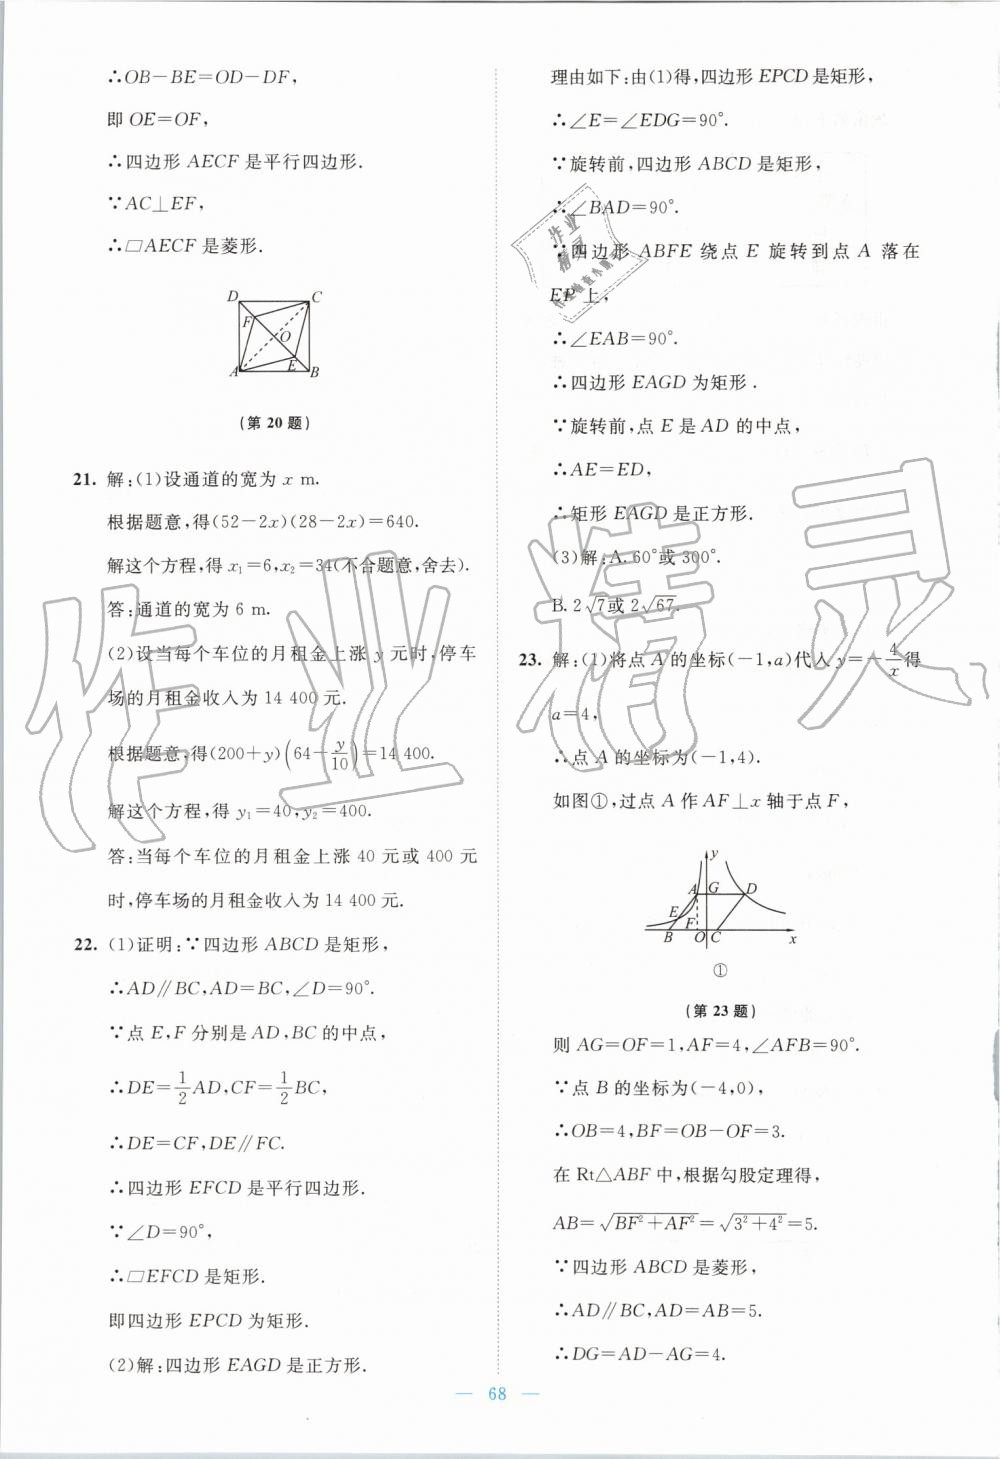 ∴OB－BE＝OD－DF,
即 OE＝OF,
∴四边形 AECF 是平行四边形.
∵AC⊥EF,
∴□AECF 是菱形.
D C
F
O
E
A B
(第 20 题)
21. 解:(1)设通道的宽为 x m.
根据题意,得(52－2x)(28－2x)＝640.
解这个方程,得 x₁＝6,x₂＝34(不合题意,舍去).
答:通道的宽为 6 m.
(2)设当每个车位的月租金上涨 y 元时,停车
场的月租金收入为 14 400 元.
根据题意,得(200＋y)(64－y/10)＝14 400.
解这个方程,得 y₁＝40,y₂＝400.
答:当每个车位的月租金上涨 40 元或 400 元
时,停车场的月租金收入为 14 400 元.
22. (1)证明:∵四边形 ABCD 是矩形,
∴AD∥BC,AD＝BC,∠D＝90°.
∵点 E,F 分别是 AD,BC 的中点,
∴DE＝1/2 AD,CF＝1/2 BC,
∴DE＝CF,DE∥FC.
∴四边形 EFCD 是平行四边形.
∵∠D＝90°,
∴□EFCD 是矩形.
即四边形 EPCD 为矩形.
(2)解:四边形 EAGD 是正方形.
理由如下:由(1)得,四边形 EPCD 是矩形,
∴∠E＝∠EDG＝90°.
∵旋转前,四边形 ABCD 是矩形,
∴∠BAD＝90°.
∵四边形 ABFE 绕点 E 旋转到点 A 落在
EP 上,
∴∠EAB＝90°.
∴四边形 EAGD 为矩形.
∵旋转前,点 E 是 AD 的中点,
∴AE＝ED,
∴矩形 EAGD 是正方形.
(3)解:A. 60°或 300°.
B. 2√7或 2√67.
23. 解:(1)将点 A 的坐标(－1,a)代入 y＝－4/x得
a＝4,
∴点 A 的坐标为(－1,4).
如图①,过点 A 作 AF⊥x 轴于点 F,
y
A G D
E F
B O C x
①
(第 23 题)
则 AG＝OF＝1,AF＝4,∠AFB＝90°.
∵点 B 的坐标为(－4,0),
∴OB＝4,BF＝OB－OF＝3.
在 Rt△ABF 中,根据勾股定理得,
AB＝√BF²＋AF²＝√3²＋4²＝5.
∵四边形 ABCD 是菱形,
∴AD∥BC,AD＝AB＝5.
∴DG＝AD－AG＝4.
— 68 —
作业精灵
作业
精灵